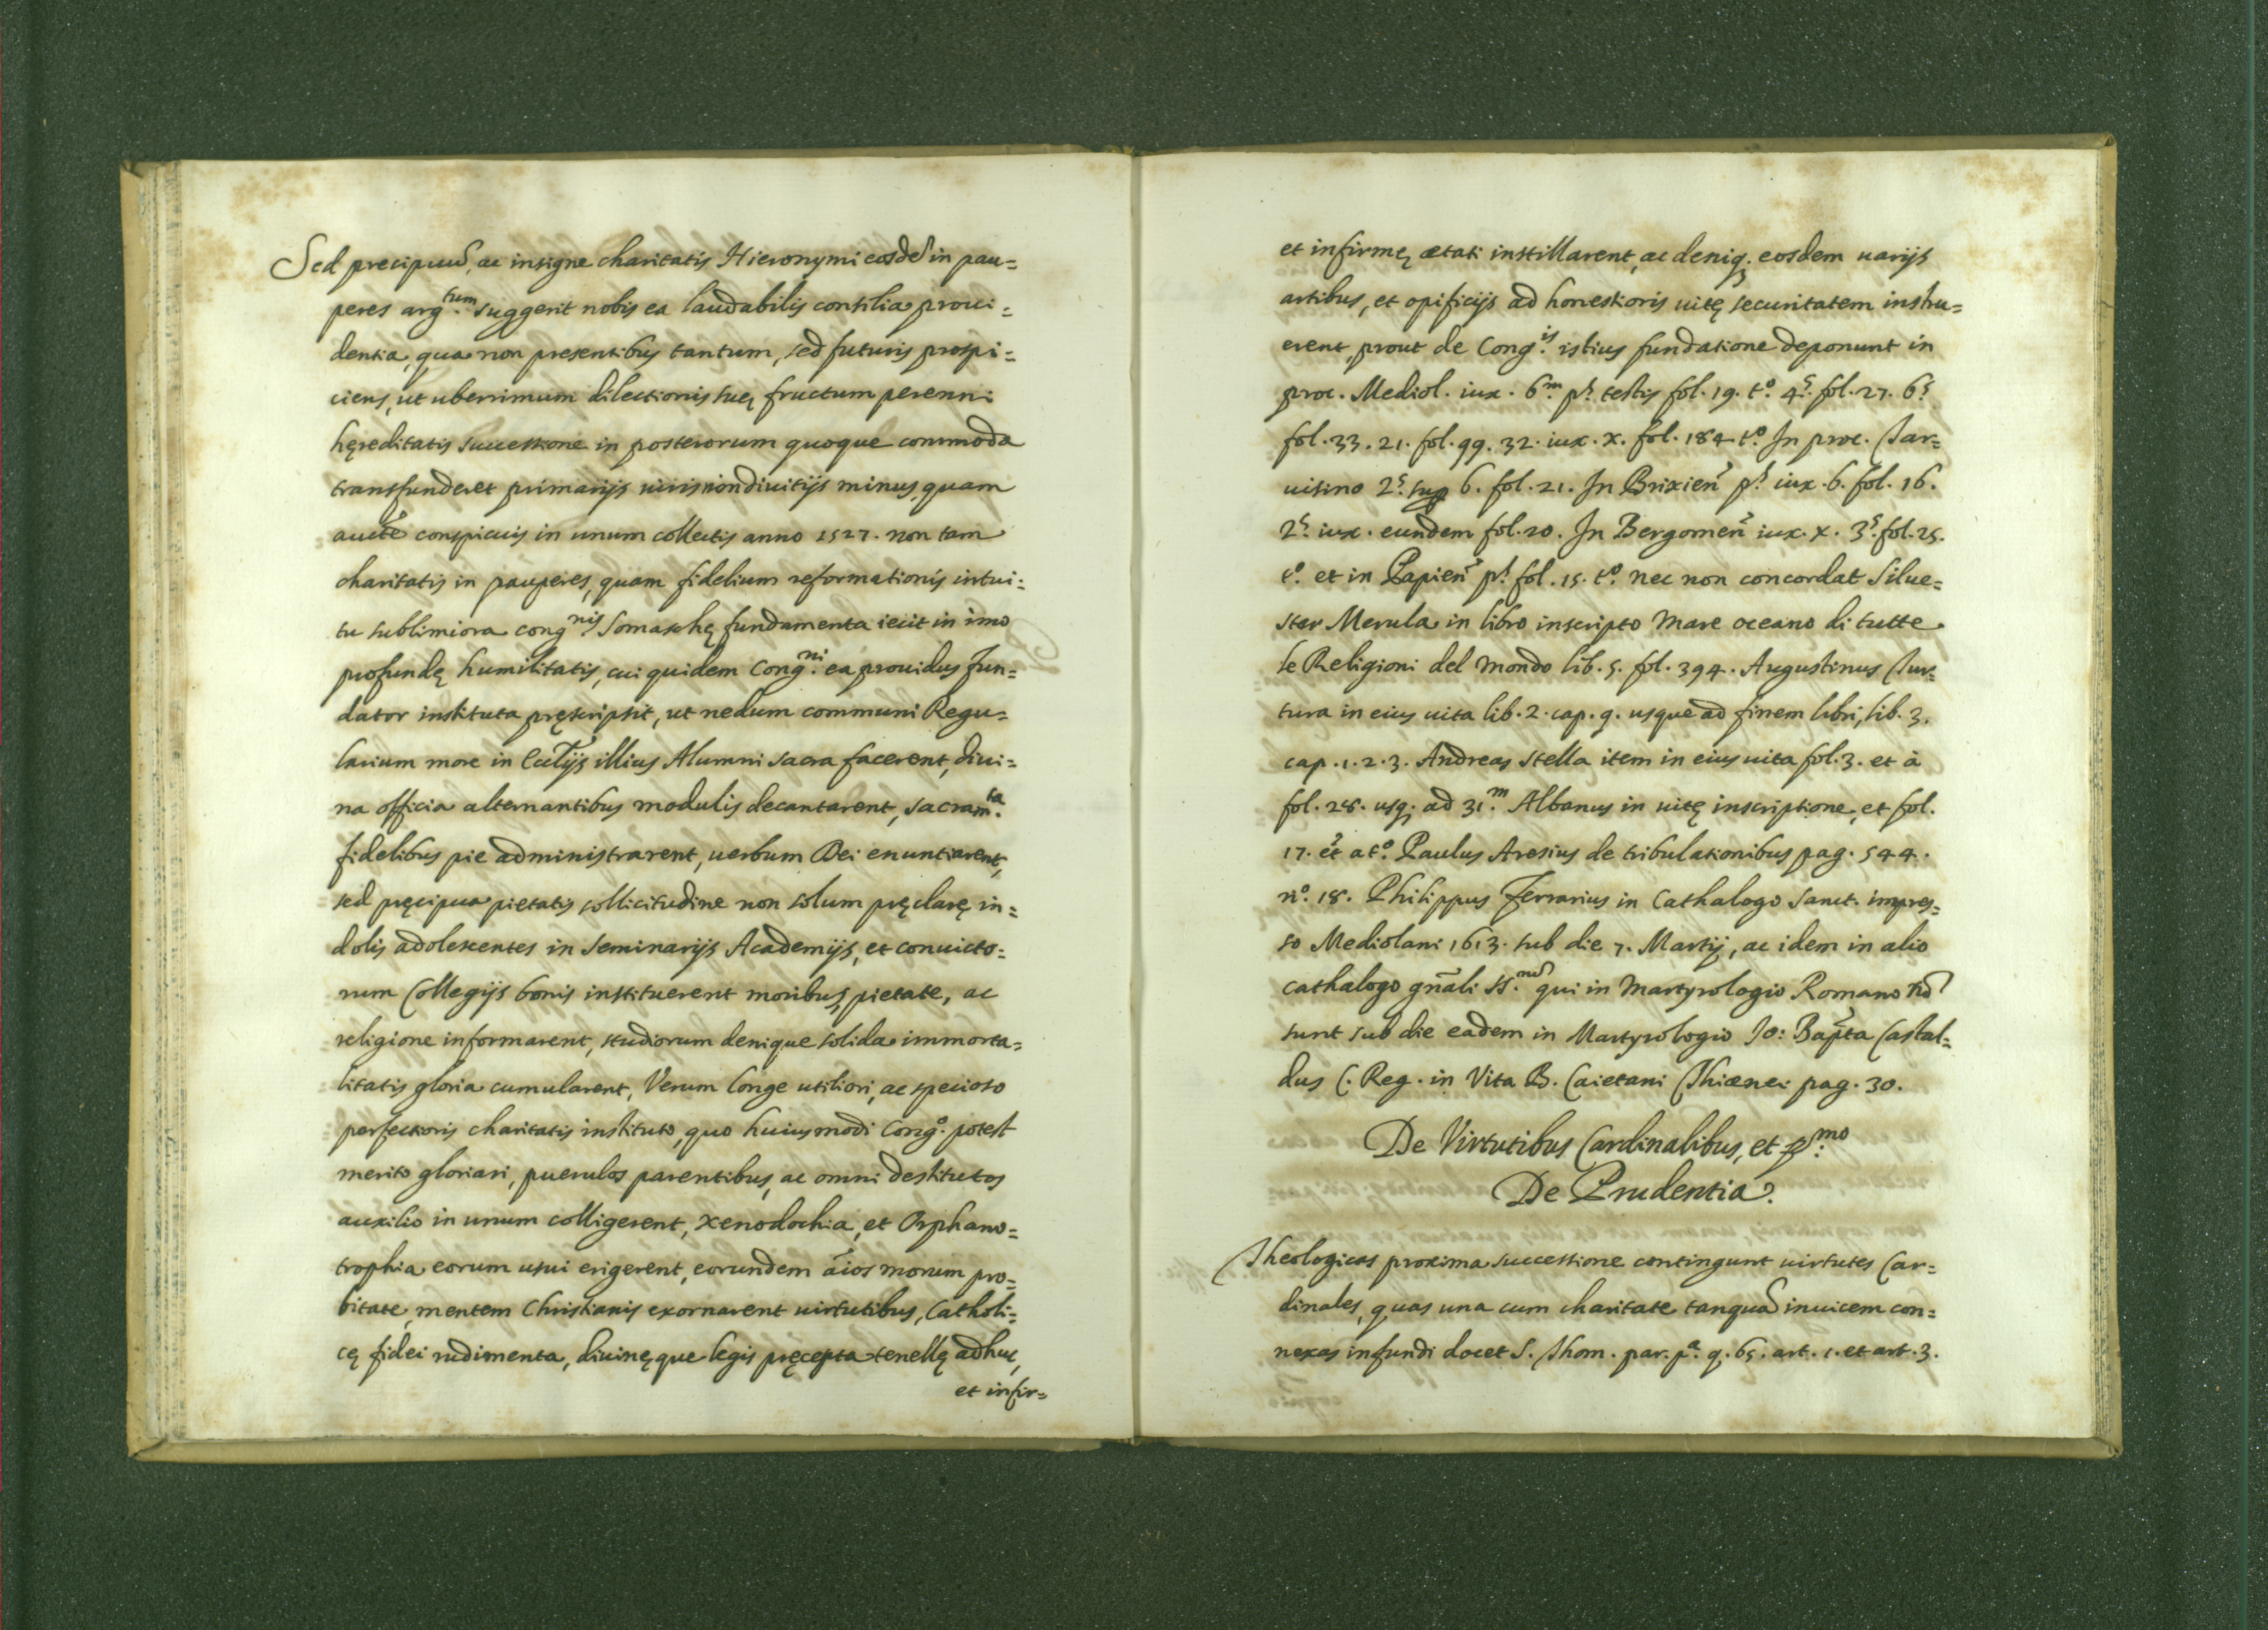 Sed precipuũ, ac insigne charitatis Hieronymi eosdẽ in pau=
peres arg.tum suggerit nobis ea laudabilis consilia proui=
dentia, qua non presentibus tantum, sed futuris prospi=
ciens, ut uberrimum dilectionis suę fructum perenni
hęreditatis successione in posterorum quoque commoda
transfunderet primarijs uiris non diuitijs minus, quam
aucte conspicuis in unum collectis anno 1527. non tam
charitatis in pauperes, quam fidelium reformationis intui=
tu sublimiora cong.nis Somaschę fundamenta iecit in imo
profundę humilitatis, cui quidem Cong.ni ea prouidus Fun=
dator instituta pręscripsit, ut nedum communi Regu=
larium more in Eccl̃ijs illius Alumni sacra facerent, diui=
na officia alternantibus modulis decantarent, sacram.ta
fidelibus pie administrarent, uerbum Dei enuntiarent,
sed pręcipua pietatis sollicitudine non solum pręclarę in=
dolis adolescentes in Seminarijs Academijs, et conuicto=
rum Collegijs bonis instituerent moribus, pietate, ac
religione informarent, studiorum denique solida immorta=
litatis gloria cumularent, Verum longe utiliori, ac specioso
perfectioris charitatis instituto, quo huiusmodi Cong.o potest
merito gloriari, puerulos parentibus, ac omni destitutos
auxilio in unum colligerent, xenodochia, et Orphano=
trophia eorum usui erigerent, eorundem aĩos morum pro=
bitate, mentem Christianis exornarent uirtutibus, Catholi=
cę fidei rudimenta, diuinęque legis pręcepta tenellę adhuc,
et infir=
et infirmę ætati instillarent, ac deniq; eosdem uarijs
artibus, et opificijs ad honestioris uitę securitatem instru=
erent, prout de Cong.is istius fundatione deponunt in
proc. Mediol. iux. 6.m p.s testis fol. 19. t.o 4.s fol. 27. 6.s
fol. 33. 21. fol. 99. 32. iux. x. fol. 184. t.o In proc. Tar=
uisino 2.s sup 6. fol. 21. In Brixieñ p.s iux. 6. fol. 16.
2.s iux. eundem fol. 20. In Bergomeñ iux. x. 3.s fol. 25.
t.o et in Papieñ p.s fol. 15. t.o nec non concordat Silue=
ster Merula in libro inscripto Mare oceano di tutte
le Religioni del Mondo lib. 5. fol. 394. Augustinus Tur=
tura in eius uita lib. 2. cap. 9. usque ad finem libri, lib. 3.
cap. 1. 2. 3. Andreas Stella item in eius uita fol. 3. et à
fol. 28. usq; ad 31.m Albanus in uitę inscriptione, et fol.
17. et at.o Paulus Aresius de tribulationibus pag. 544.
n.o 18. Philippus Ferrarius in Cathalogo Sanct. impres=
so Mediolani 1613. sub die 7. Martij, ac idem in alio
cathalogo gñali SS. qui in Martyrologio Romano nõ
sunt sub die eadem in Martyrologio Jo: Bapta Castal=
dus C. Reg. in Vita B. Caietani Thiænei pag. 30.
De Virtutibus Cardinalibus, et p.mo
De Prudentia.
Theologicas proxima successione contingunt uirtutes Car=
dinales, quas una cum charitate tanquã inuicem con=
nexas infundi docet S. Thom. par. p.a q. 65. art. 1. et art. 3.